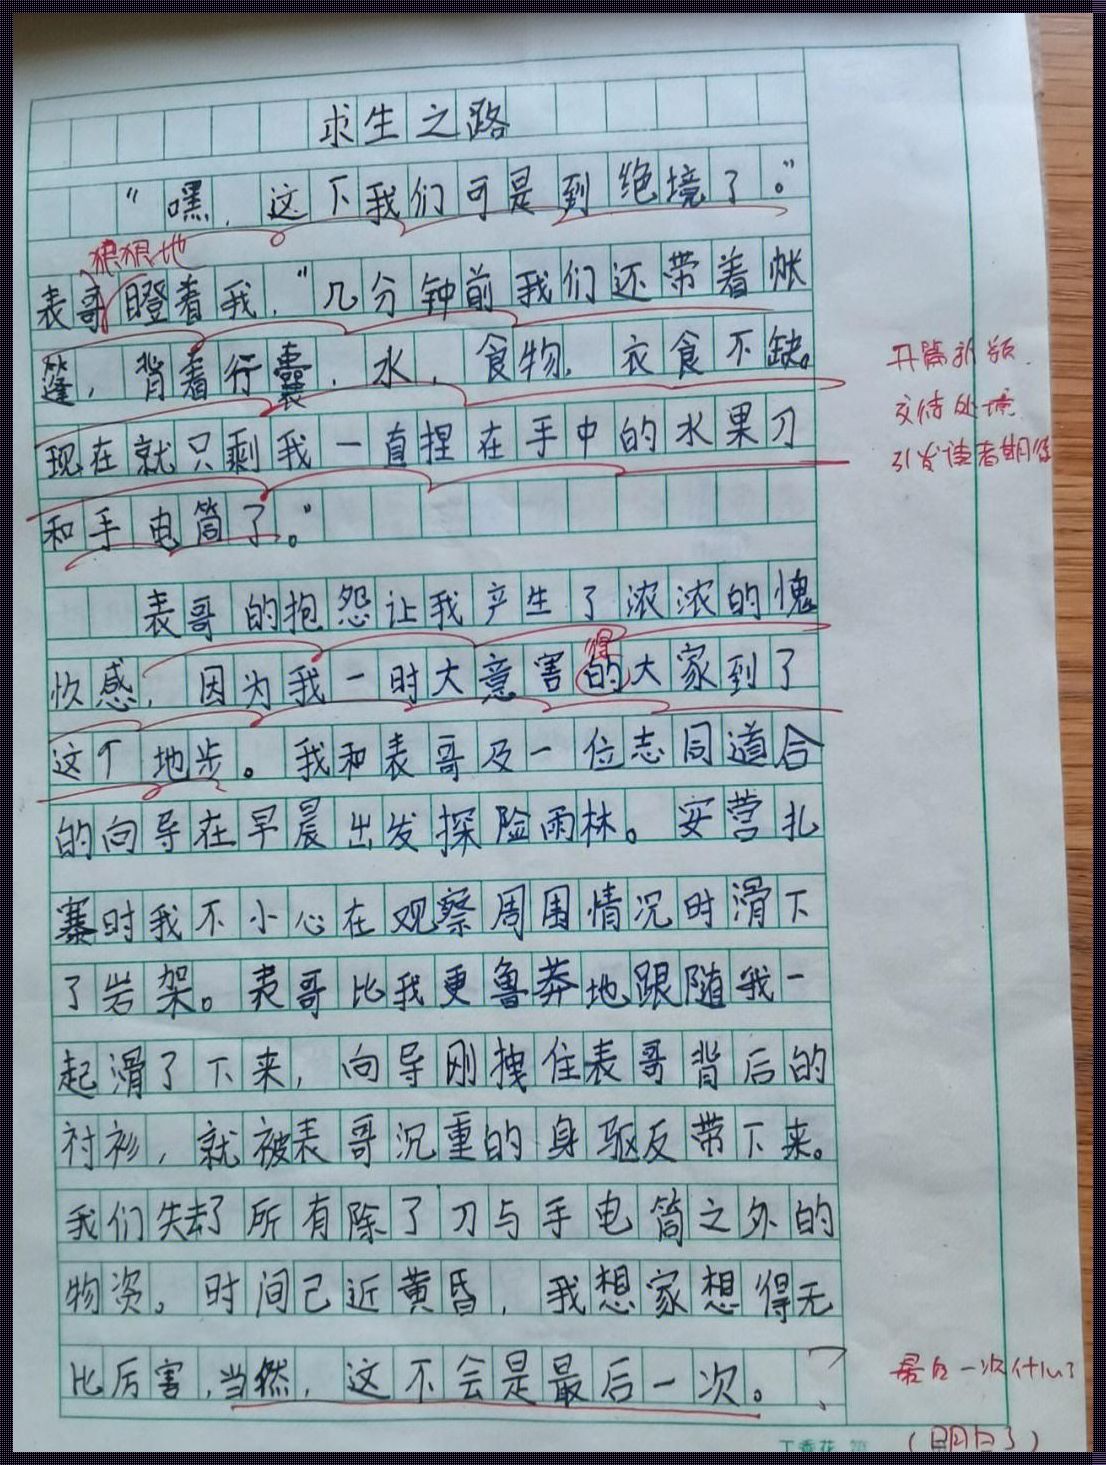 求生之路
“嘿，这下我们可是到绝境了。”
狠狠地
表哥瞪着我，“几分钟前我们还带着帐
篷，背着行囊，水，食物，衣食不缺。
开篇新颖
交待处境
现在就只剩我一直捏在手中的水果刀
引发读者期待
和手电筒了。”
表哥的抱怨让我产生了浓浓的愧
得
疚感，因为我一时大意害的大家到了
这个地步。我和表哥及一位志同道合
的向导在早晨出发探险雨林。安营扎
寨时我不小心在观察周围情况时滑下
了岩架。表哥比我更鲁莽地跟随我一
起滑了下来，向导刚拽住表哥背后的
衬衫，就被表哥沉重的身驱反带下来。
我们失去了所有除了刀与手电筒之外的
物资。时间已近黄昏，我想家想得无
比厉害，当然，这不会是最后一次。？
最后一次什么？
（明白了）